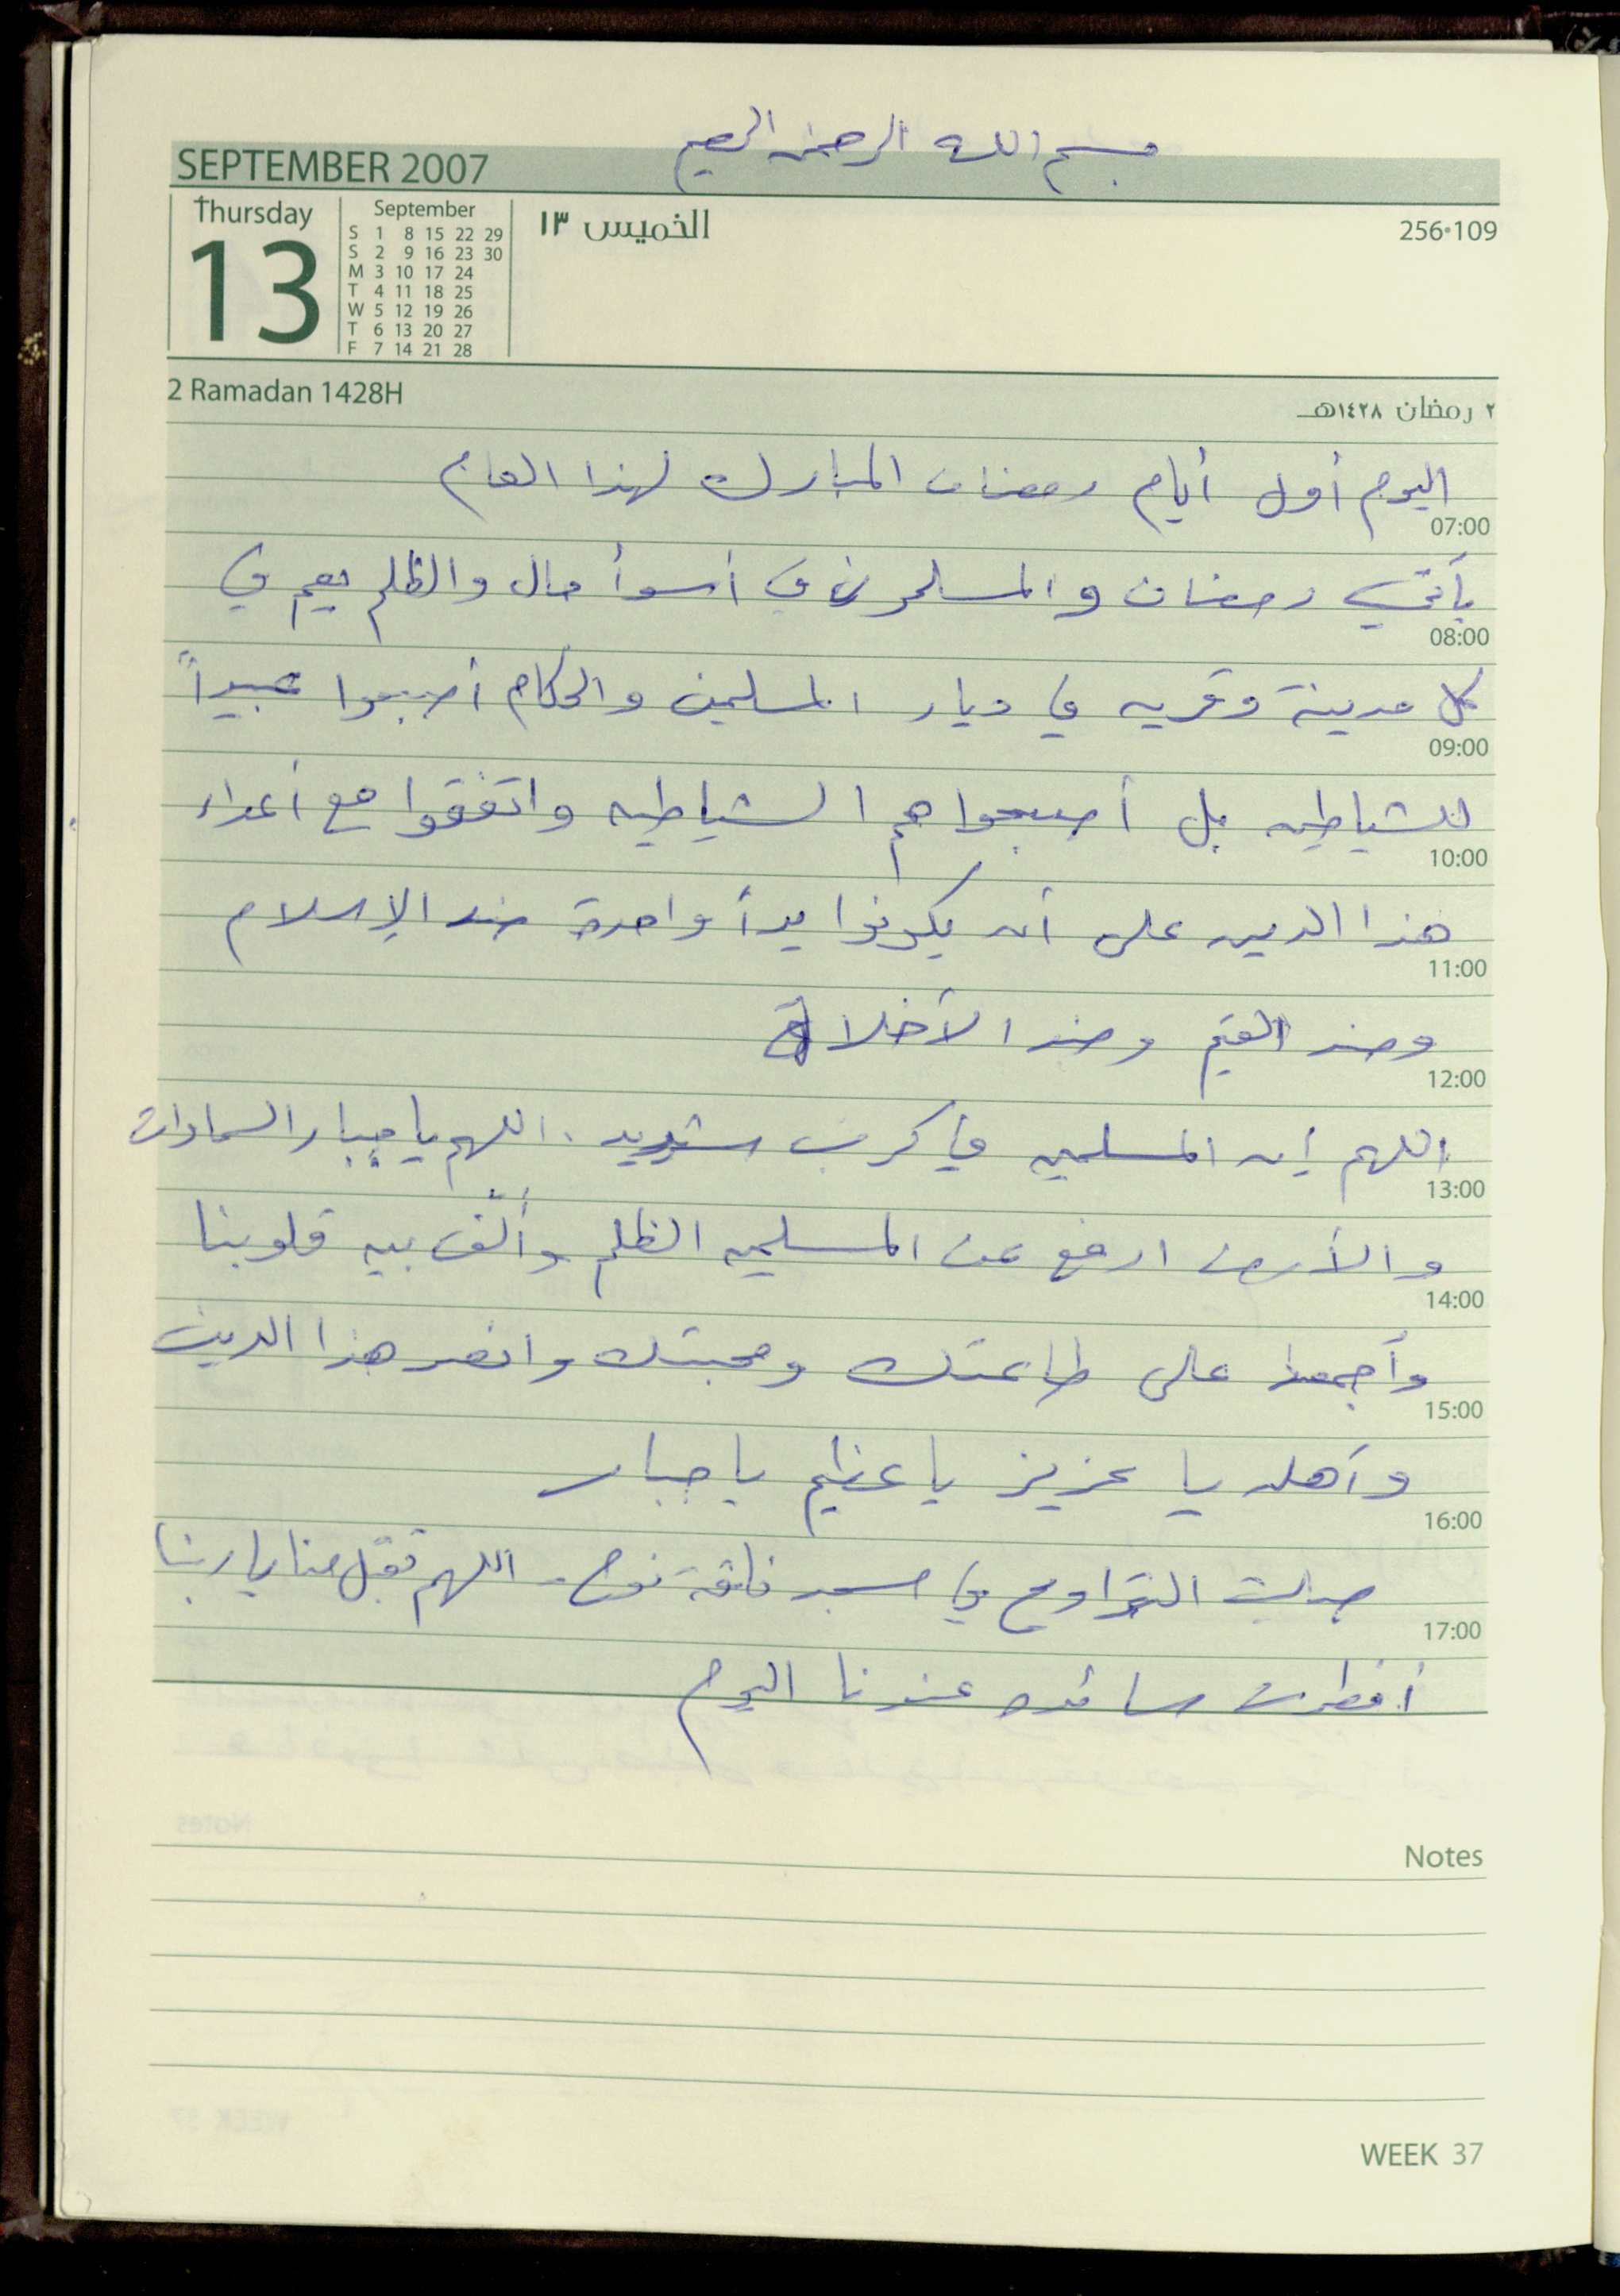 بسم الله الرحمن الرحيم
SEPTEMBER 2007
Thursday
13
September
S 1 8 15 22 29
S 2 9 16 23 30
M 3 10 17 24
T 4 11 18 25
W 5 12 19 26
T 6 13 20 27
F 7 14 21 28
الخميس ١٣
256•109
2 Ramadan 1428H
٢ رمضان ١٤٢٨هـ
اليوم أول أيام رمضان المبارك لهذا العام
07:00
يأتي رمضان والمسلمون في أسوأ حال والظلم يعم في
08:00
كل مدينة وقريه في ديار المسلمين والحكام أصبحوا عبيداً
09:00
للشياطين بل أصبحوا هم الشياطين واتفقوا مع أعداء
10:00
هذا الدين على أن يكونوا يداً واحدة ضد الإسلام
11:00
وضد القيم وضد الأخلاق
12:00
اللهم إن المسلمين في كرب شديد. اللهم يا جبار السماوات
13:00
والأرض ارفع عن المسلمين الظلم وألّف بين قلوبنا
14:00
وأجمعنا على طاعتك ومحبتك وانصر هذا الدين
15:00
وأهله يا عزيز يا عظيم يا جبار
16:00
صليت التراويح في مسجد ناقة نوح. اللهم تقبل منا يا ربنا
17:00
أفطرت عندنا اليوم
Notes
WEEK 37